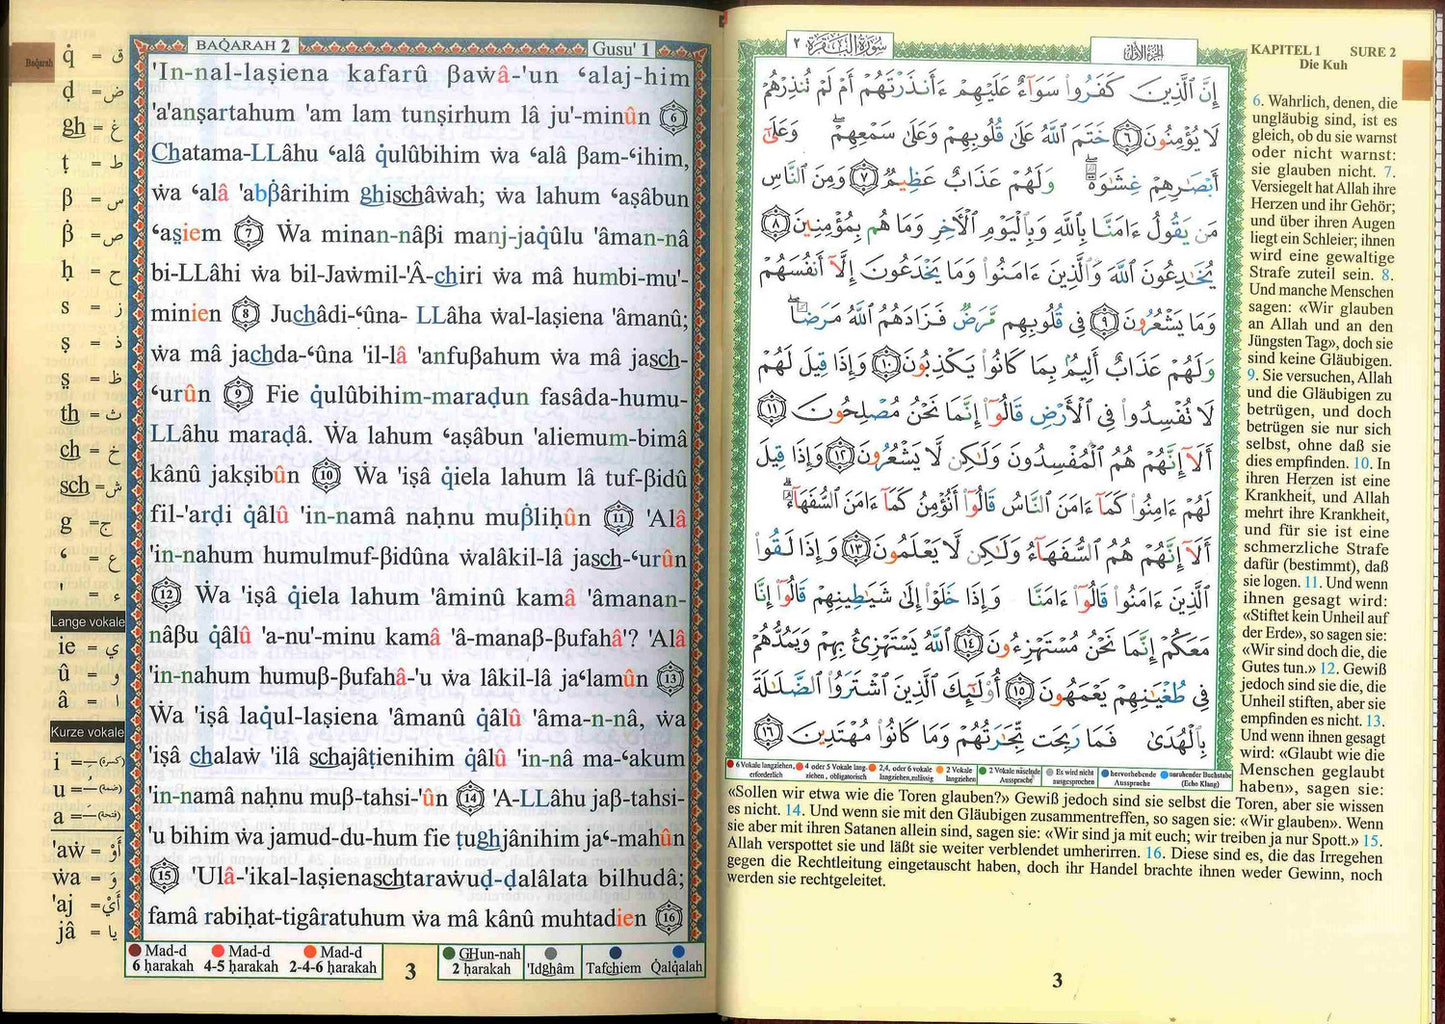 Baqarah
q̇ = ق
ḍ = ض
gh = غ
ṭ = ط
β = س
β̇ = ص
ḥ = ح
s = ز
ṣ = ذ
ṣ̱ = ظ
th = ث
ch = خ
sch = ش
g = ج
ʿ = ع
' = ء
Lange vokale
ie = ي
û = و
â = ا
Kurze vokale
i = (كسرة)
u = (ضمة)
a = (فتحة)
'aẇ = أَوْ
ẇa = وَ
'aj = أَيْ
jâ = يا
BAQ̇ARAH 2
Gusu' 1
'In-nal-laṣiena kafarû βaẇâ-'un ʿalaj-him
'a'anṣartahum 'am lam tunṣirhum lâ ju'-minûn 6
Chatama-LLâhu ʿalâ q̇ulûbihim ẇa ʿalâ βam-ʿihim,
ẇa ʿalâ 'abβ̇ârihim ghischâẇah; ẇa lahum ʿaṣâbun
ʿaṣ̱iem 7 Ẇa minan-nâβi manj-jaq̇ûlu 'âman-nâ
bi-LLâhi ẇa bil-Jaẇmil-'Â-chiri ẇa mâ humbi-mu'-
minien 8 Juchâdi-ʿûna- LLâha ẇal-laṣiena 'âmanû;
ẇa mâ jachda-ʿûna 'il-lâ 'anfuβahum ẇa mâ jasch-
ʿurûn 9 Fie q̇ulûbihim-maraḍun fasâda-humu-
LLâhu maraḍâ. Ẇa lahum ʿaṣâbun 'aliemum-bimâ
kânû jakṣibûn 10 Ẇa 'iṣâ q̇iela lahum lâ tuf-βidû
fil-'arḍi q̇âlû 'in-namâ naḥnu muβ̇liḥûn 11 'Alâ
'in-nahum humulmuf-βidûna ẇalâkil-lâ jasch-ʿurûn
12 Ẇa 'iṣâ q̇iela lahum 'âminû kamâ 'âmanan-
nâβu q̇âlû 'a-nu'-minu kamâ 'â-manaβ-βufahâ'? 'Alâ
'in-nahum humuβ-βufahâ-'u ẇa lâkil-lâ jaʿlamûn 13
Ẇa 'iṣâ laq̇ul-laṣiena 'âmanû q̇âlû 'âma-n-nâ, ẇa
'iṣâ chalaẇ 'ilâ schajâṭienihim q̇âlû 'in-nâ ma-ʿakum
'in-namâ naḥnu muβ-tahsi-'ûn 14 'A-LLâhu jaβ-tahsi-
'u bihim ẇa jamud-du-hum fie ṭughjânihim jaʿ-mahûn
15 'Ulâ-'ikal-laṣienaschtaraẇuḍ-ḍalâlata bilhudâ;
famâ rabiḥat-tigâratuhum ẇa mâ kânû muhtadien 16
Mad-d 6 ḥarakah
Mad-d 4-5 ḥarakah
Mad-d 2-4-6 ḥarakah
3
GHun-nah 2 ḥarakah
'Idghâm
Tafchiem
Q̇alq̇alah
٢ سورة البقرة
الجزء الأول
إِنَّ ٱلَّذِينَ كَفَرُوا۟ سَوَآءٌ عَلَيْهِمْ ءَأَنذَرْتَهُمْ أَمْ لَمْ تُنذِرْهُمْ
لَا يُؤْمِنُونَ ٦ خَتَمَ ٱللَّهُ عَلَىٰ قُلُوبِهِمْ وَعَلَىٰ سَمْعِهِمْ ۖ وَعَلَىٰٓ
أَبْصَـٰرِهِمْ غِشَـٰوَةٌ ۖ وَلَهُمْ عَذَابٌ عَظِيمٌ ٧ وَمِنَ ٱلنَّاسِ
مَن يَقُولُ ءَامَنَّا بِٱللَّهِ وَبِٱلْيَوْمِ ٱلْـَٔاخِرِ وَمَا هُم بِمُؤْمِنِينَ ٨
يُخَـٰدِعُونَ ٱللَّهَ وَٱلَّذِينَ ءَامَنُوا۟ وَمَا يَخْدَعُونَ إِلَّآ أَنفُسَهُمْ
وَمَا يَشْعُرُونَ ٩ فِى قُلُوبِهِم مَّرَضٌ فَزَادَهُمُ ٱللَّهُ مَرَضًا ۖ
وَلَهُمْ عَذَابٌ أَلِيمٌۢ بِمَا كَانُوا۟ يَكْذِبُونَ ١٠ وَإِذَا قِيلَ لَهُمْ
لَا تُفْسِدُوا۟ فِى ٱلْأَرْضِ قَالُوٓا۟ إِنَّمَا نَحْنُ مُصْلِحُونَ ١١
أَلَآ إِنَّهُمْ هُمُ ٱلْمُفْسِدُونَ وَلَـٰكِن لَّا يَشْعُرُونَ ١٢ وَإِذَا قِيلَ
لَهُمْ ءَامِنُوا۟ كَمَآ ءَامَنَ ٱلنَّاسُ قَالُوٓا۟ أَنُؤْمِنُ كَمَآ ءَامَنَ ٱلسُّفَهَآءُ ۗ
أَلَآ إِنَّهُمْ هُمُ ٱلسُّفَهَآءُ وَلَـٰكِن لَّا يَعْلَمُونَ ١٣ وَإِذَا لَقُوا۟
ٱلَّذِينَ ءَامَنُوا۟ قَالُوٓا۟ ءَامَنَّا وَإِذَا خَلَوْا۟ إِلَىٰ شَيَـٰطِينِهِمْ قَالُوٓا۟ إِنَّا
مَعَكُمْ إِنَّمَا نَحْنُ مُسْتَهْزِءُونَ ١٤ ٱللَّهُ يَسْتَهْزِئُ بِهِمْ وَيَمُدُّهُمْ
فِى طُغْيَـٰنِهِمْ يَعْمَهُونَ ١٥ أُو۟لَـٰٓئِكَ ٱلَّذِينَ ٱشْتَرَوُا۟ ٱلضَّلَـٰلَةَ
بِٱلْهُدَىٰ فَمَا رَبِحَت تِّجَـٰرَتُهُمْ وَمَا كَانُوا۟ مُهْتَدِينَ ١٦
6 Vokale langziehen, erforderlich
4 oder 5 Vokale langziehen, obligatorisch
2,4, oder 6 vokale langziehen,zulässig
2 Vokale langziehen
2 Vokale näselnde Aussprache
Es wird nicht ausgesprochen
hervorhebende Aussprache
unruhender Buchstabe (Echo Klang)
KAPITEL 1 SURE 2
Die Kuh
6. Wahrlich, denen, die
ungläubig sind, ist es
gleich, ob du sie warnst
oder nicht warnst:
sie glauben nicht. 7.
Versiegelt hat Allah ihre
Herzen und ihr Gehör;
und über ihren Augen
liegt ein Schleier; ihnen
wird eine gewaltige
Strafe zuteil sein. 8.
Und manche Menschen
sagen: «Wir glauben
an Allah und an den
Jüngsten Tag», doch sie
sind keine Gläubigen.
9. Sie versuchen, Allah
und die Gläubigen zu
betrügen, und doch
betrügen sie nur sich
selbst, ohne daß sie
dies empfinden. 10. In
ihren Herzen ist eine
Krankheit, und Allah
mehrt ihre Krankheit,
und für sie ist eine
schmerzliche Strafe
dafür (bestimmt), daß
sie logen. 11. Und wenn
ihnen gesagt wird:
«Stiftet kein Unheil auf
der Erde», so sagen sie:
«Wir sind doch die, die
Gutes tun.» 12. Gewiß
jedoch sind sie die, die
Unheil stiften, aber sie
empfinden es nicht. 13.
Und wenn ihnen gesagt
wird: «Glaubt wie die
Menschen geglaubt
haben», sagen sie:
«Sollen wir etwa wie die Toren glauben?» Gewiß jedoch sind sie selbst die Toren, aber sie wissen
es nicht. 14. Und wenn sie mit den Gläubigen zusammentreffen, so sagen sie: «Wir glauben». Wenn
sie aber mit ihren Satanen allein sind, sagen sie: «Wir sind ja mit euch; wir treiben ja nur Spott.» 15.
Allah verspottet sie und läßt sie weiter verblendet umherirren. 16. Diese sind es, die das Irregehen
gegen die Rechtleitung eingetauscht haben, doch ihr Handel brachte ihnen weder Gewinn, noch
werden sie rechtgeleitet.
3